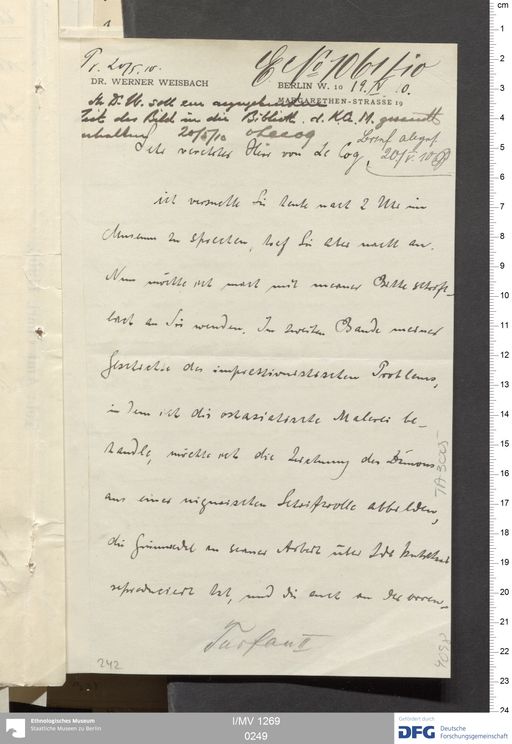 Pr. 20/5.10.
E № 1061/10
DR. WERNER WEISBACH
BERLIN W. 10 19. V. 10.
MARGARETHEN-STRASSE 19
Hr. D. W. soll ein
Zeit das Bild in die Biblioth. d. K. M. gesandt
erhalten 20/5/10 vLecoq
20/V. 10
Sehr verehrter Herr von Le Coq,
ich versuchte Sie heute nach 2 Uhr im
Museum zu sprechen, traf Sie aber nicht an.
Nun möchte ich mich mit meiner Bitte schrift-
lich an Sie wenden. Im zweiten Bande meiner
Geschichte des impressionistischen Problems,
in dem ich die ostasiatische Malerei be-
handle, möchte ich die Zeichnung des Dämons
aus einer uigurischen Schriftrolle abbilden,
die Grünwedel in seiner Arbeit über Idikutschari
reproduciert hat, und die auch in der
Turfan II
242
TA 3005
4098
I/MV 1269
0249
Ethnologisches Museum
Staatliche Museen zu Berlin
Gefördert durch
DFG Deutsche
Forschungsgemeinschaft
cm
1
2
3
4
5
6
7
8
9
10
11
12
13
14
15
16
17
18
19
20
21
22
23
24